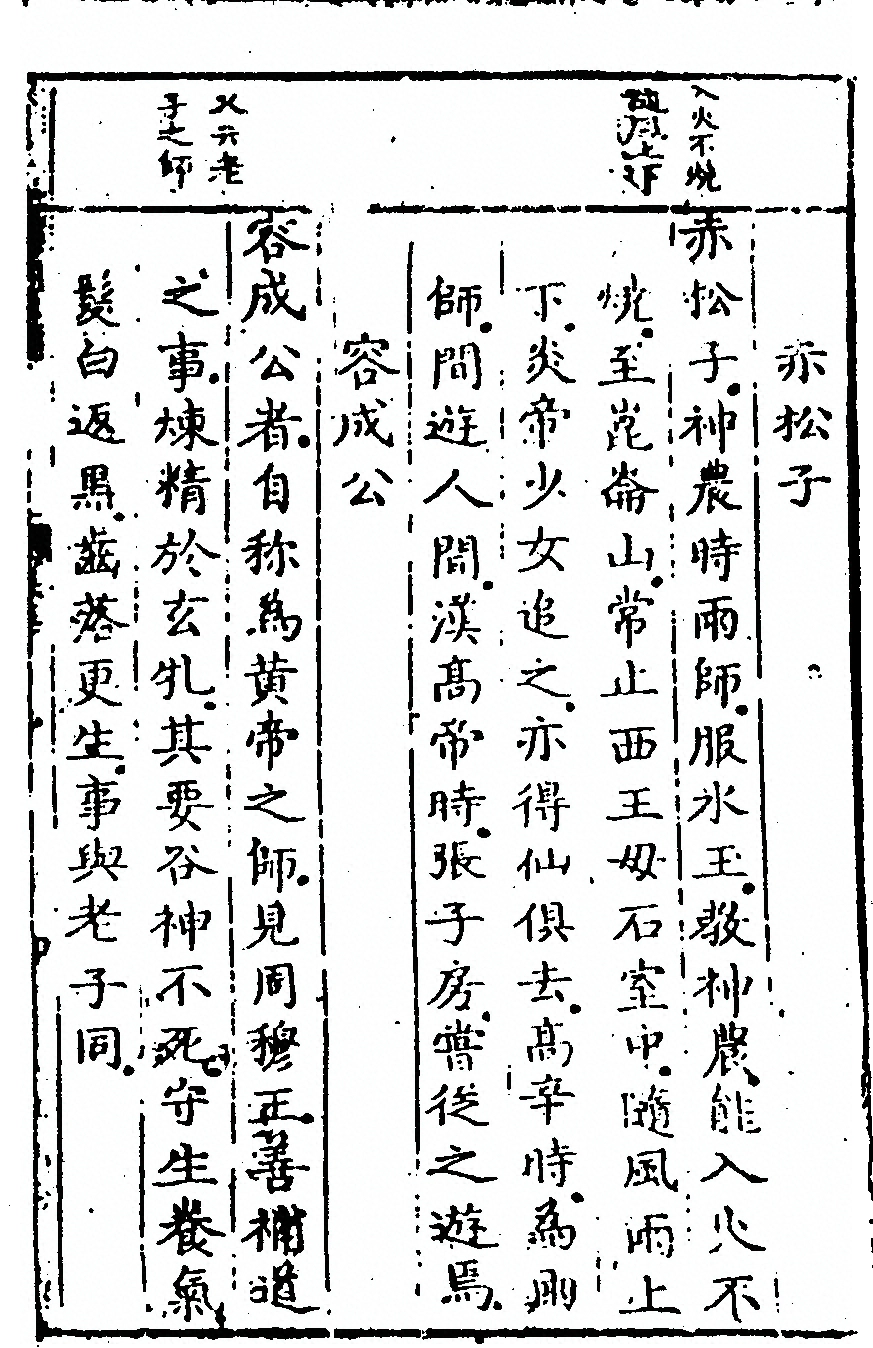 入火不燒
赤松子
赤松子。神農時雨師。服水玉。教神農。能入火不
燒。至崑崙山。常止西王母石室中。隨風雨上
下。炎帝少女追之。亦得仙俱去。高辛時。為雨
師。間遊人間。漢高帝時。張子房。嘗從之遊焉。
容成公
又云老
子之師
容成公者。自称為黃帝之師。見周穆王。善補道
之事。煉精於玄牝。其要谷神不死。守生養氣。
髮白返黑。齒落更生。事與老子同。